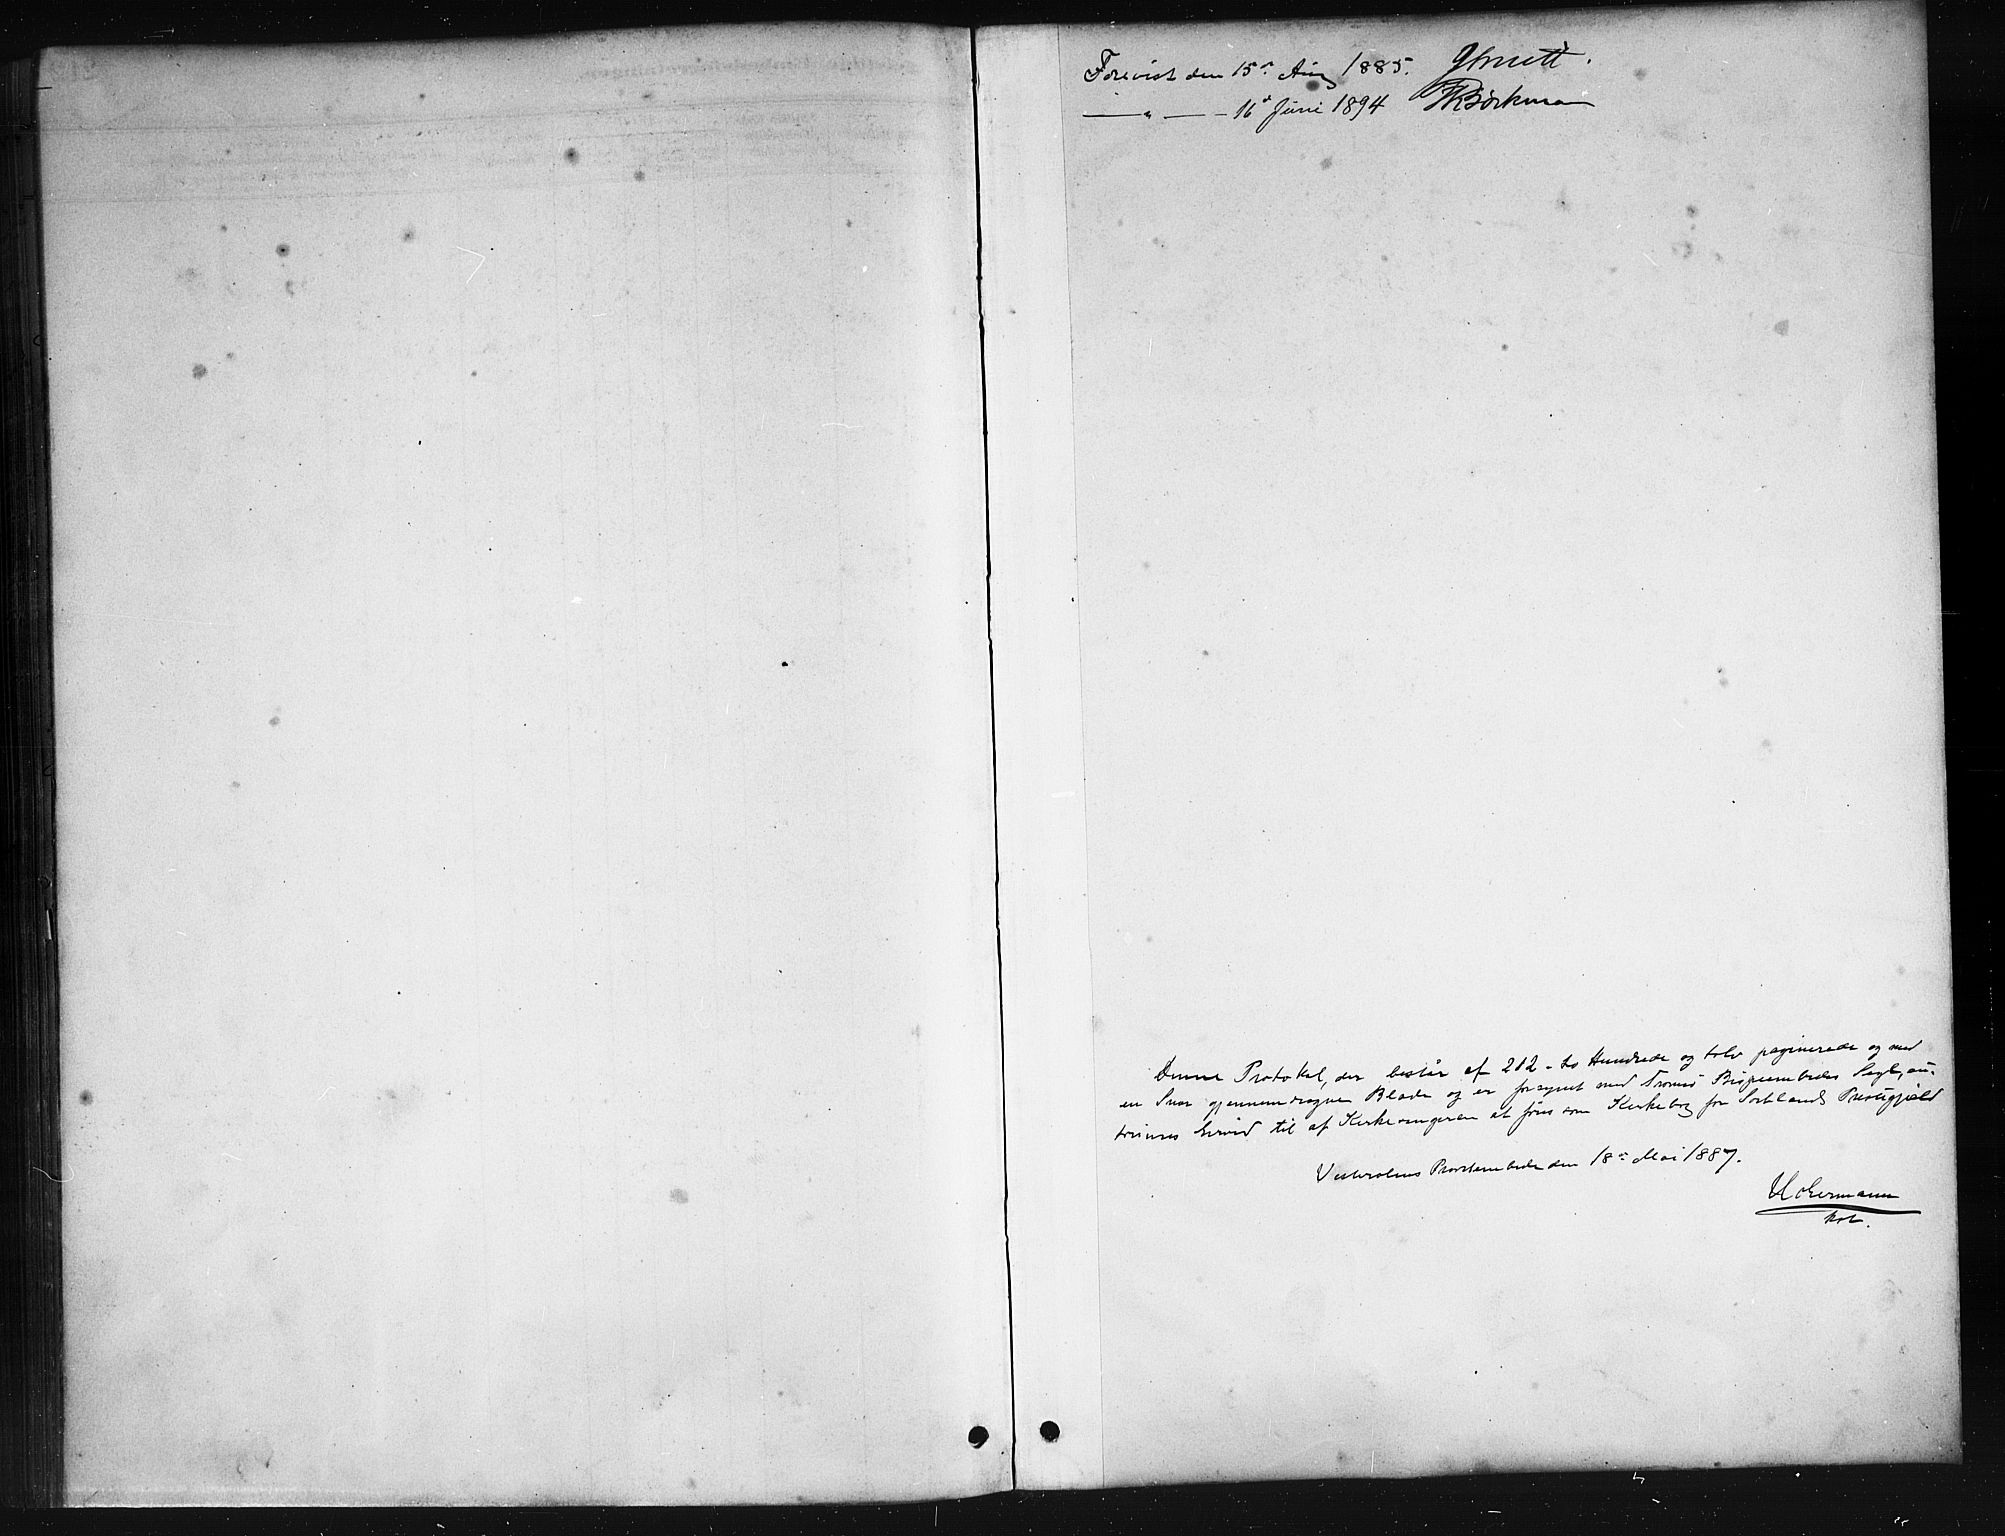 Forevist den 15de Aug 1885.
— " — — 16de Juni 1894 Bøckman
Denne Protokol, der består af 212 - to Hundrede og tolv paginerede og med
en Snor gjennemdragne Blade og er forsynet med Tromsø Bispeembedes Segl, au-
toriseres herved til af Kirkesangeren at føres som Kirkebog for Sortlands Prestegjæld
Vesteraalens Provsteembede den 18de Mai 1887.
kst.